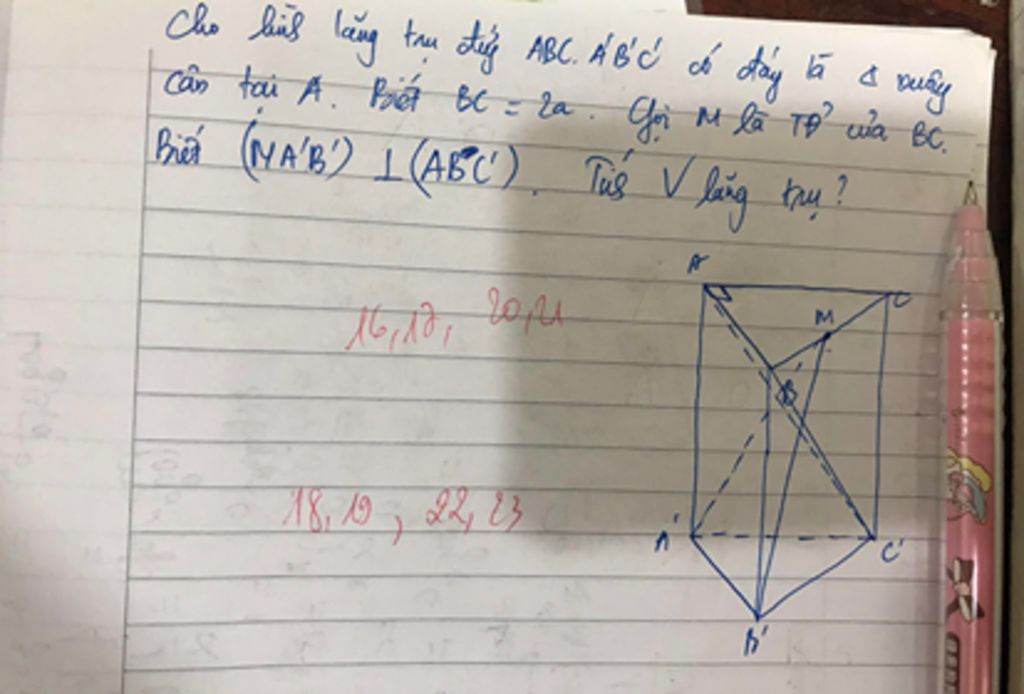 Cho hình lăng trụ đứg ABC. A'B'C' có đáy là Δ vuông
cân tại A. Biết BC = 2a. Gọi M là TĐ của BC.
Biết (MA'B') ⊥ (ABC'). Tính V lăng trụ?
A
C
M
16, 17, 20, 21
B
18, 19, 22, 23
A'
C'
B'